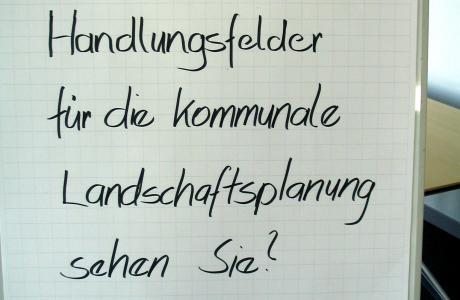 Handlungsfelder
für die kommunale
Landschaftsplanung
sehen Sie?